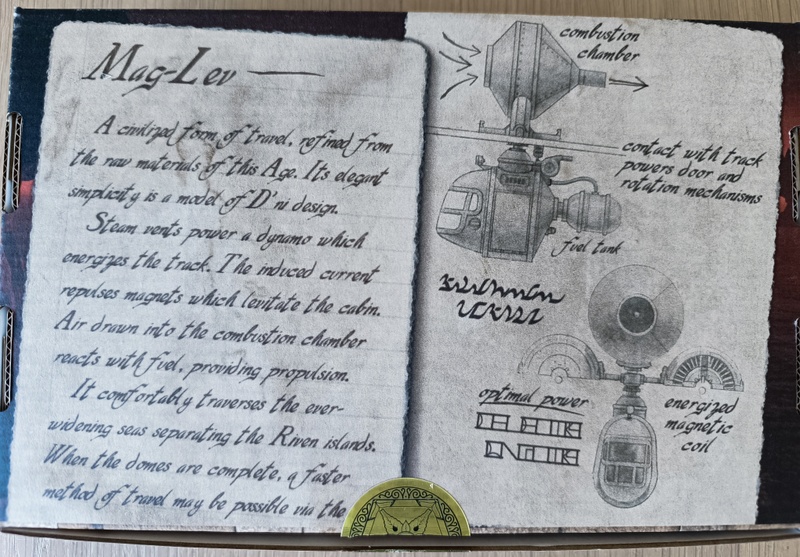 Mag-Lev
A civilized form of travel, refined from
the raw materials of this Age. Its elegant
simplicity is a model of D'ni design.
Steam vents power a dynamo which
energizes the track. The induced current
repulses magnets which levitate the cabin.
Air drawn into the combustion chamber
reacts with fuel, providing propulsion.
It comfortably traverses the ever-
widening seas separating the Riven islands.
When the domes are complete, a faster
method of travel may be possible via the
combustion
chamber
contact with track
powers door and
rotation mechanisms
fuel tank
optimal power
energized
magnetic
coil